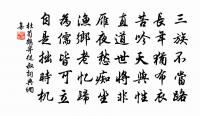 三族不當路
長年猶布衣
苦吟天與性
直道世將非
雁夜愁癡坐
漁鄉老憶歸
為儒皆可立
自是拙時機
杜荀鶴寄從叔詞典網
集